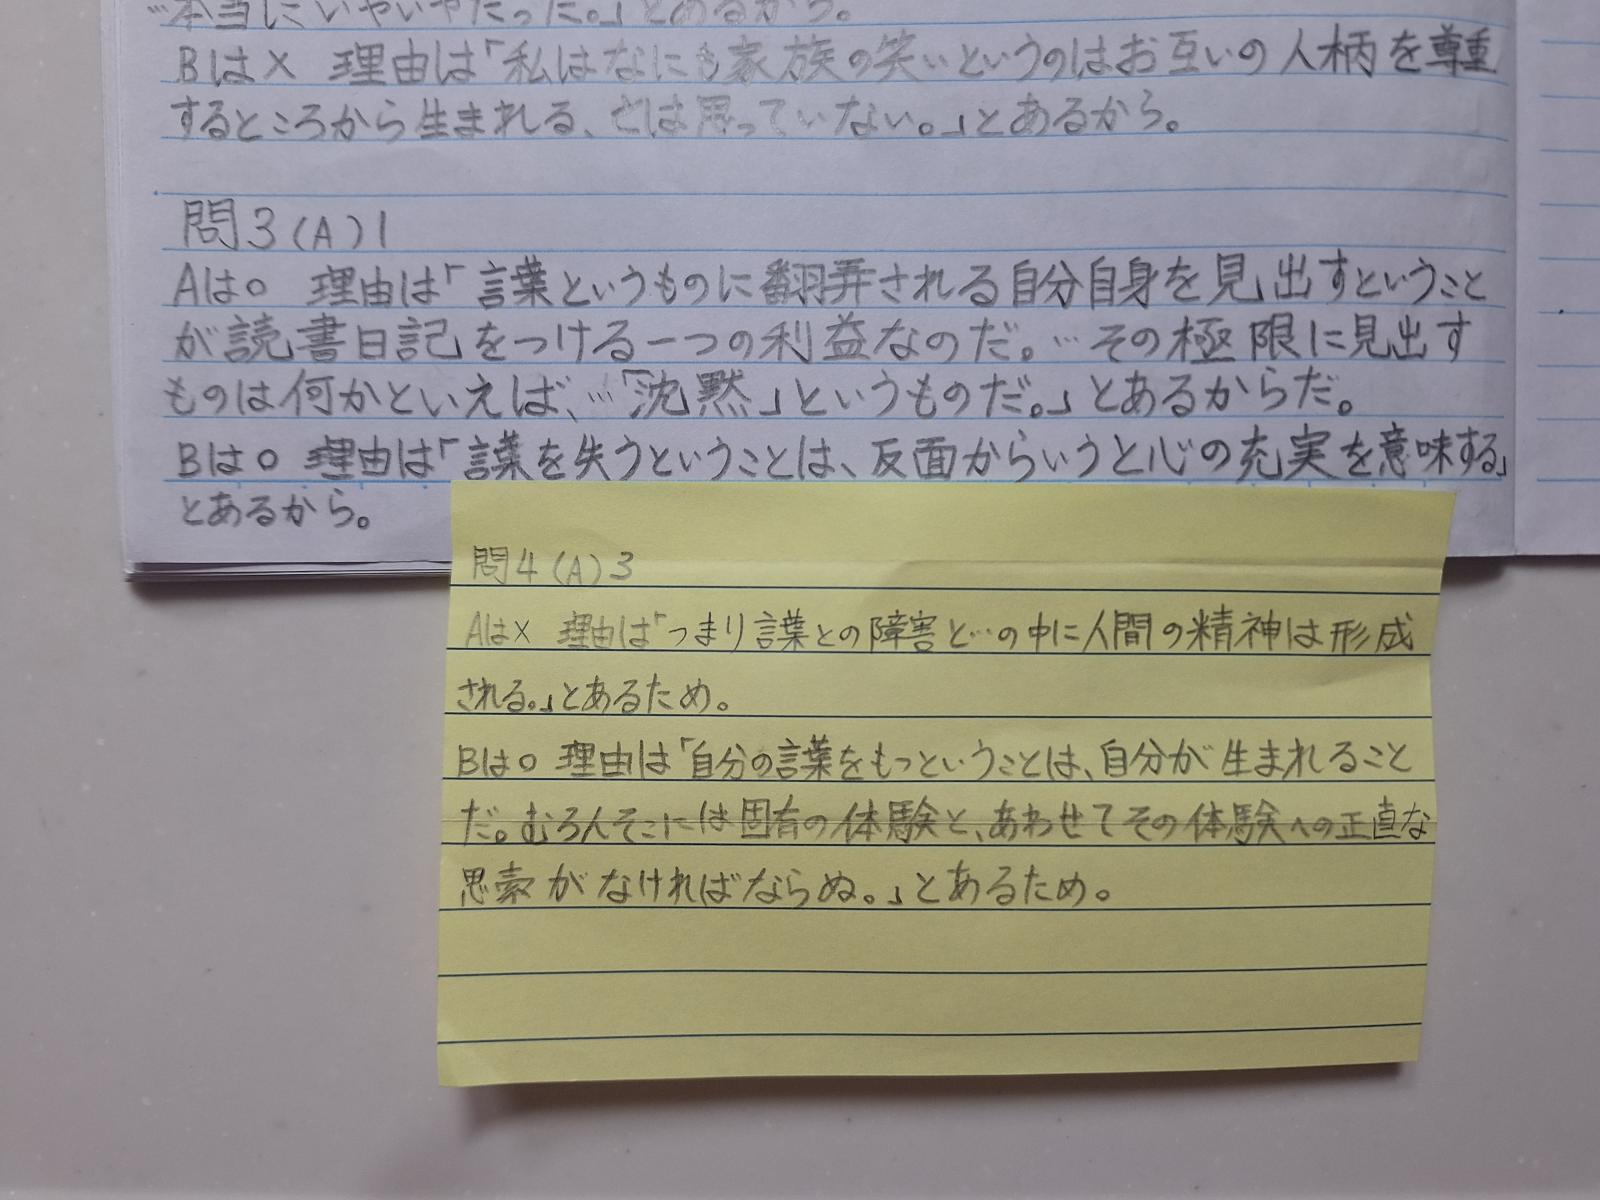 …本当にいやいやだった。」とあるから。
Bは× 理由は「私はなにも家族の笑いというのはお互いの人柄を尊重
するところから生まれる、とは思っていない。」とあるから。
問3(A)1
Aは○ 理由は「言葉というものに翻弄される自分自身を見出すということ
が読書日記をつける一つの利益なのだ。…その極限に見出す
ものは何かといえば、…「沈黙」というものだ。」とあるからだ。
Bは○ 理由は「言葉を失うということは、反面からいうと心の充実を意味する」
とあるから。
問4(A)3
Aは× 理由は「つまり言葉との障害と…の中に人間の精神は形成
される。」とあるため。
Bは○ 理由は「自分の言葉をもつということは、自分が生まれること
だ。むろんそこには固有の体験と、あわせてその体験への正直な
思索がなければならぬ。」とあるため。